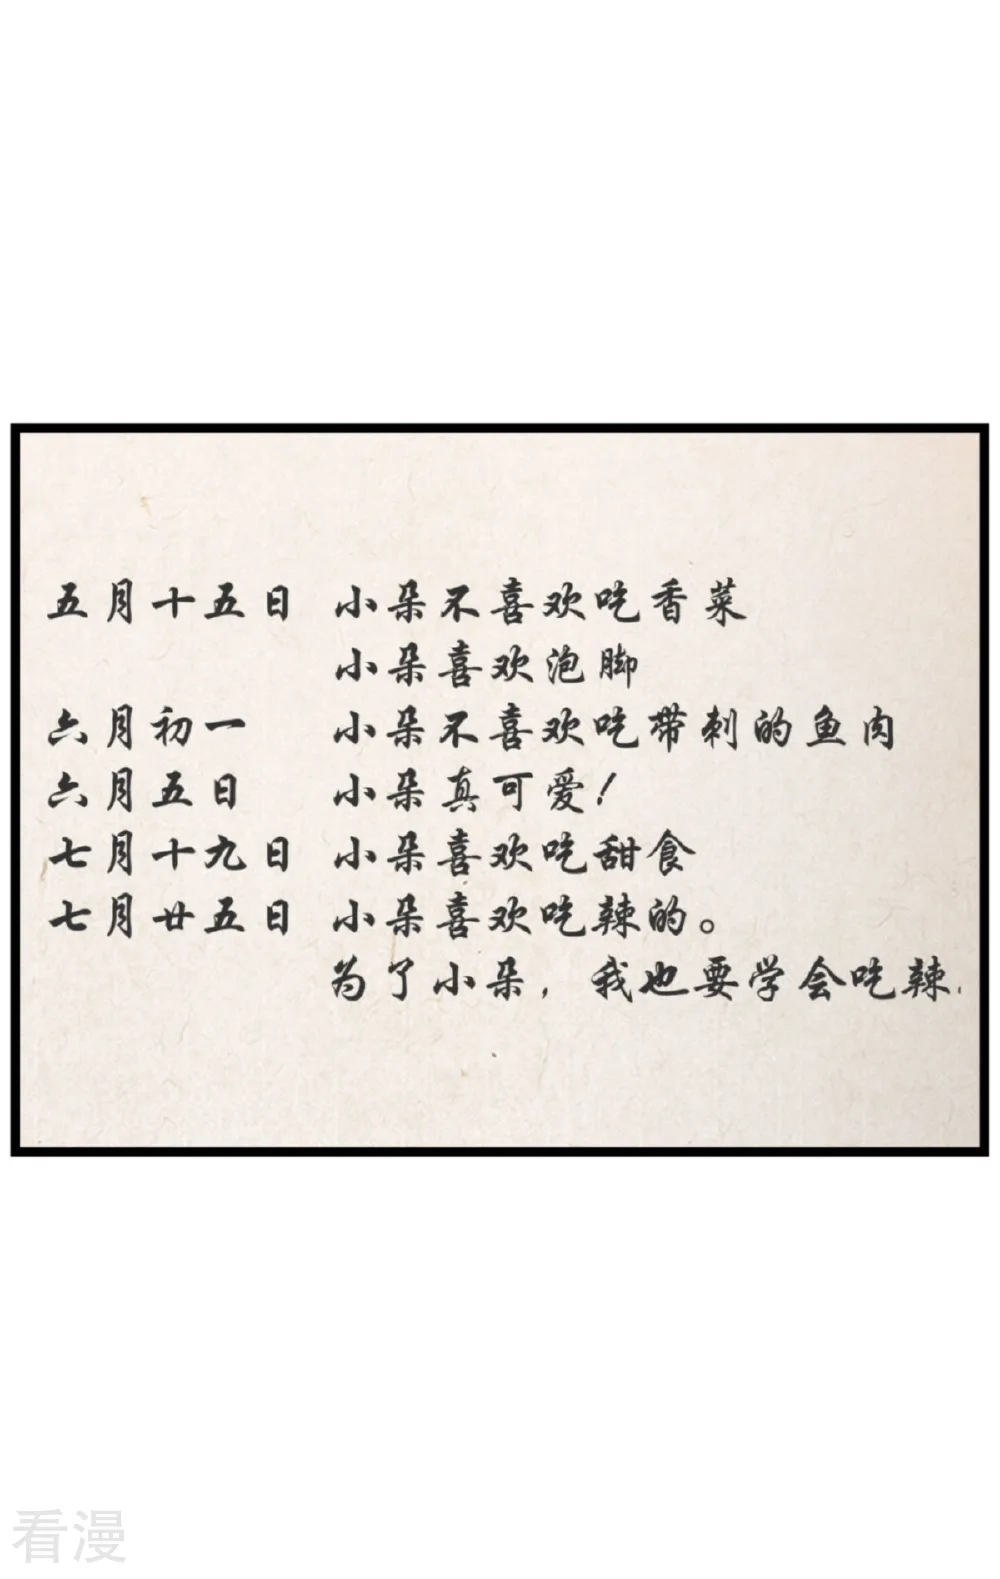 五月十五日 小朵不喜欢吃香菜
小朵喜欢泡脚
六月初一 小朵不喜欢吃带刺的鱼肉
六月五日 小朵真可爱！
七月十九日 小朵喜欢吃甜食
七月廿五日 小朵喜欢吃辣的。
为了小朵，我也要学会吃辣.
看漫